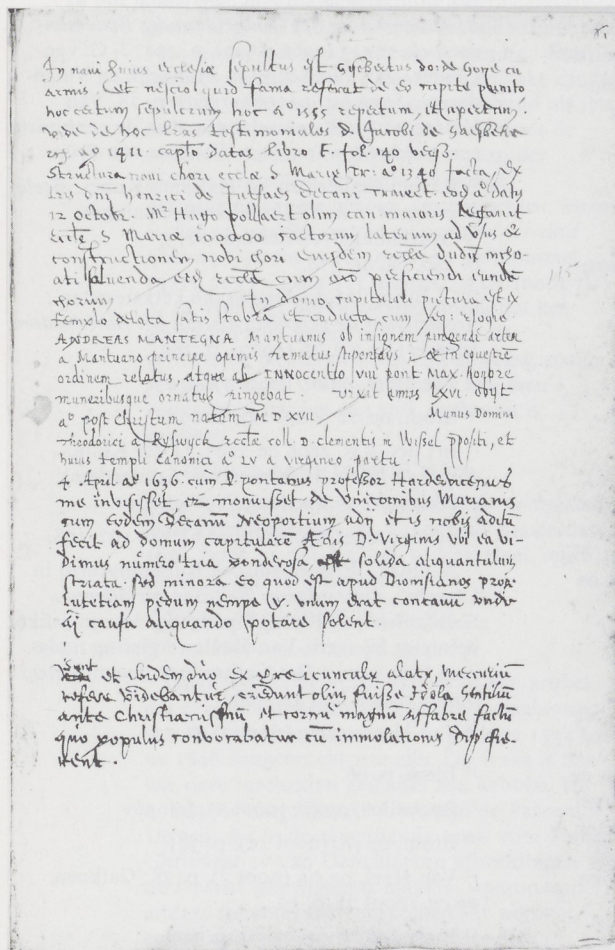 In navi huius ecclesiæ sepultus est Gysbertus do: de Goye cu
armis. et nescio quid fama referat de eo capite punito
hoc certum sepulcrum hoc aº 1555 repertum, et apertum.
vide de hoc lrãs testimoniales D. Jacobi de
aº 1411. datas libro E. fol. 140 vers.
Structura novi chori ecclæ S Mariæ Tr: aº 1340 facta, ex
lris dnj henrici de Jutfaes decani traiect. eod aº datis
12 octobr. Mr Hugo pollaert olim can. maioris legavit
S Mariæ 100000 coctorum laterum ad usus et
constructionem novi chori eiusdem dudũ incho-
ati solvenda cum perficiendi eundẽ
chorum. In domo capitulari pictura est ex
templo delata satis scabra et cũ elogio
ANDREAS MANTEGNA Mantuanus ob insignem pingendi artem
a Mantuano principe opimis firmatus stipendijs; & in equestrẽ
ordinem relatus, atque ab INNOCENTIO VIII pont MAX. honore
muneribusque ornatus pingebat. vixit annos LXVI. obijt
aº post Christum natum M D XVII. Munus Domini
Theodorici a Ryswyck coll D. clementis in Wissel ppositi, et
huius templi Canonici aº LV a virgineo partu.
4 April aº 1636 cum D. pontanus professor Hardervicenus
me invisisset, et monuisset de Unicornibus Marianis
cum eodem Decanũ Neoportium adij et is nobis aditũ
fecit ad domum capitularẽ Ædis D. Virginis ubi ea vi-
dimus numero tria ponderosa, solida aliquantulum
striata. sed minora eo quod est apud Dionisianos prope
Lutetiam pedum nempe V. unum erat concavũ unde
causa aliquando potare solent.
Sunt et ibidem ex ære icunculæ alatæ, mercuriũ
referre videbantur, credunt olim fuisse Idola Gentiliũ
ante Christianismũ et cornu magnũ affabre factũ
quo populus convocabatur cũ immolationis dijs fie-
rent.